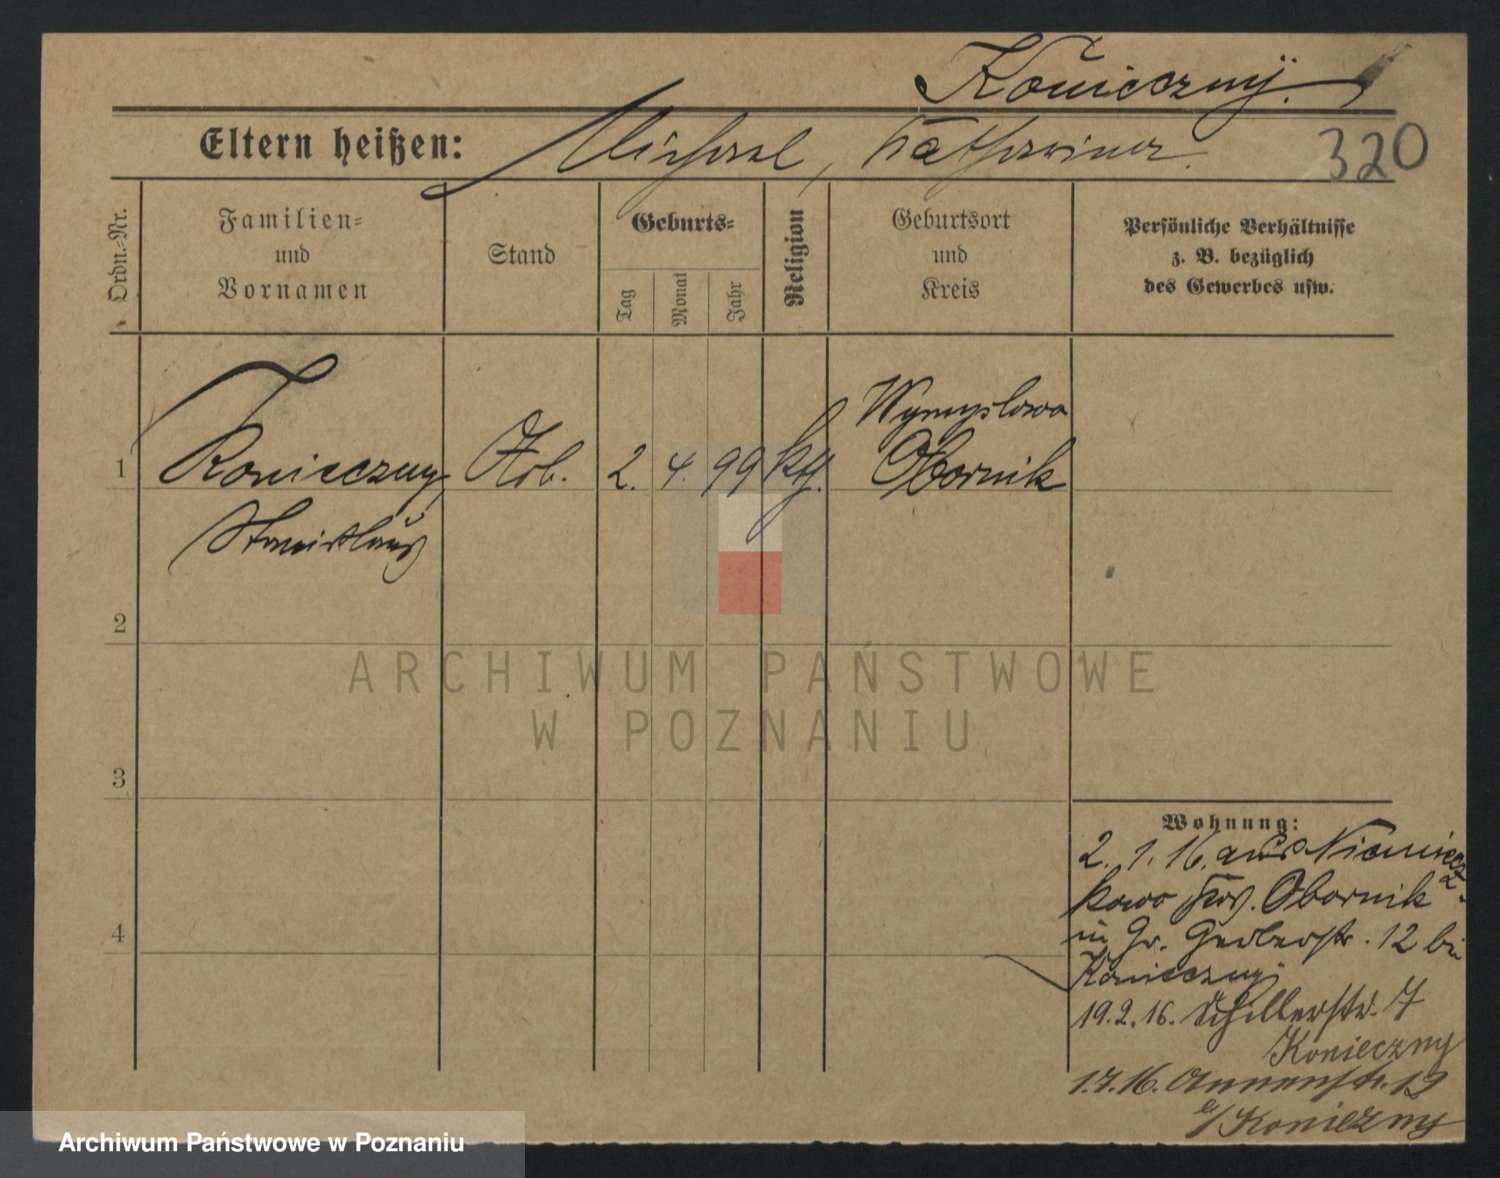 Konieczny.
Eltern heißen: Michael, Katharina.
320
Ordn.-Nr.
Familien-
und
Vornamen
Stand
Geburts-
Tag
Monat
Jahr
Religion
Geburtsort
und
Kreis
Persönliche Verhältnisse
z. B. bezüglich
des Gewerbes usw.
Wymyslowo
1 Konieczny, Arb. 2. 4. 99 kth. Obornik
Stanislaus
2
3
4
ARCHIWUM PAŃSTWOWE
W POZNANIU
Wohnung:
2. 1. 16. aus Niemiecz-
kowo Krs. Obornik
in Gr. Gerberstr. 12 bei
Konieczny
19. 2. 16. Schillerstr. 7
Konieczny
1. 7. 16. Annenstr. 12
b/ Konieczny
Archiwum Państwowe w Poznaniu